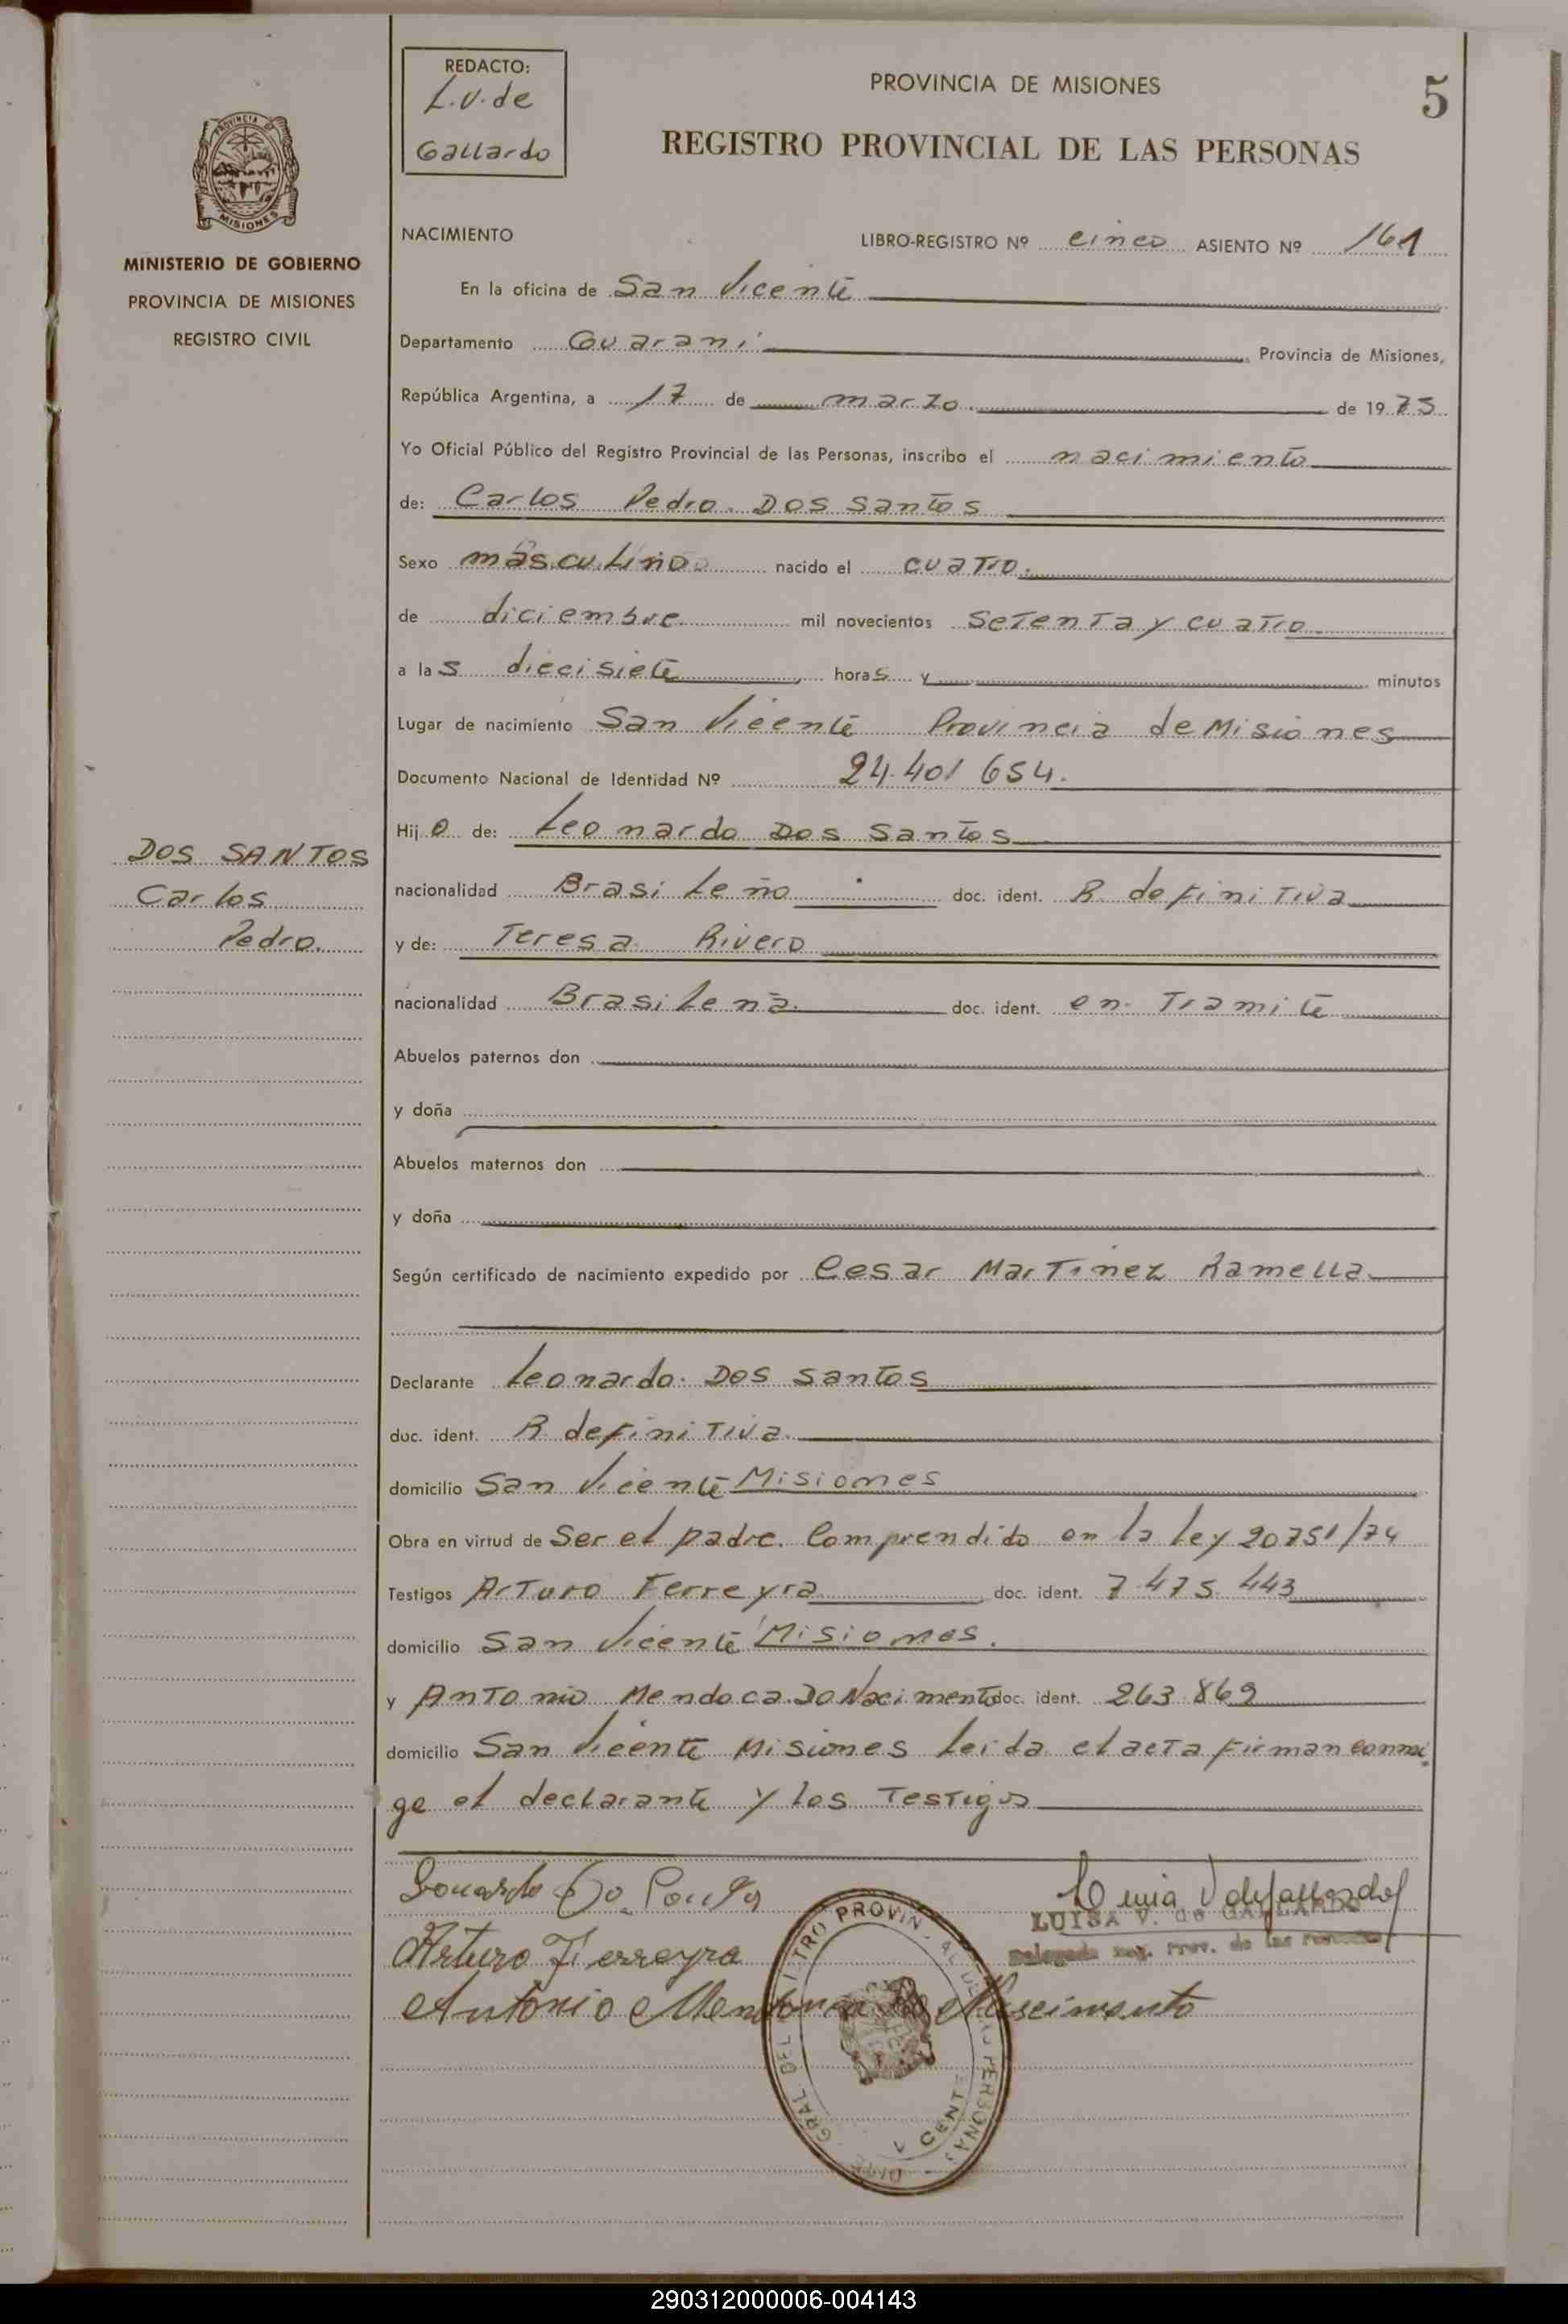 REDACTO:
L.V. de
Gallardo
PROVINCIA DE MISIONES
5
REGISTRO PROVINCIAL DE LAS PERSONAS
PROVINCIA
MISIONES
MINISTERIO DE GOBIERNO
PROVINCIA DE MISIONES
REGISTRO CIVIL
NACIMIENTO LIBRO-REGISTRO Nº cinco ASIENTO Nº 161
En la oficina de San Vicente
Departamento Guarani Provincia de Misiones,
República Argentina, a 17 de marzo de 1975
Yo Oficial Público del Registro Provincial de las Personas, inscribo el nacimiento
de: Carlos Pedro Dos Santos
Sexo masculino nacido el cuatro
de diciembre mil novecientos setenta y cuatro
a las diecisiete horas y minutos
Lugar de nacimiento San Vicente Provincia de Misiones
Documento Nacional de Identidad Nº 24.401 654.
Hijo de: Leonardo Dos Santos
DOS SANTOS
Carlos
Pedro.
nacionalidad Brasileño doc. ident. R definitiva
y de: Teresa Rivero
nacionalidad Brasileña doc. ident. en Tramite
Abuelos paternos don
y doña
Abuelos maternos don
y doña
Según certificado de nacimiento expedido por Cesar Martinez Ramella
Declarante Leonardo Dos Santos
doc. ident. R definitiva
domicilio San Vicente Misiones
Obra en virtud de Ser el padre. Comprendido en la ley 20751/74
Testigos Arturo Ferreyra doc. ident. 7.475.443
domicilio San Vicente Misiones.
y Antonio Mendoca Do Nacimento doc. ident. 263.869
domicilio San Vicente Misiones Leida el acta firman conmi
go el declarante y los Testigos
LUISA V. de GALLARDO
Delegada Reg. Prov. de las Personas
Arturo Ferreyra
Antonio Mendonca do Nascimento
290312000006-004143